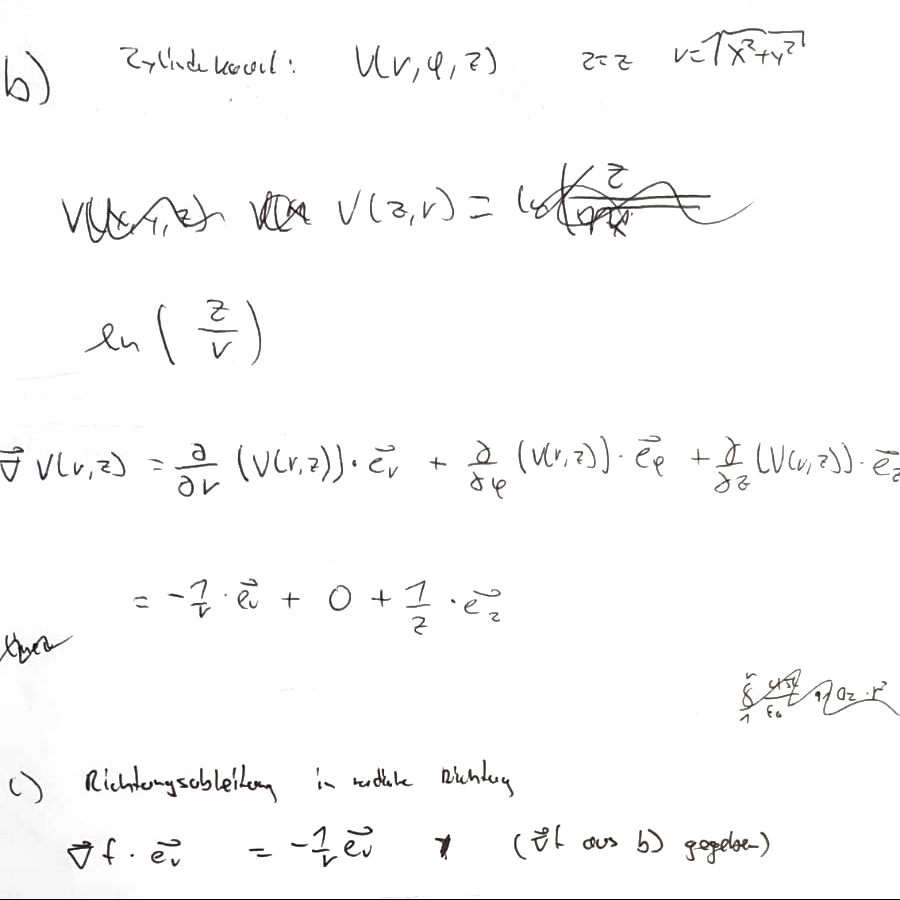 b) Zylinderkoord.: V(r, φ, z) z=z r=√x²+y²
V(z,r) =
ln ( z/r )
∇⃗ V(r,z) = ∂/∂r (V(r,z)) · e⃗r + ∂/∂φ (V(r,z)) · e⃗φ + ∂/∂z (V(r,z)) · e⃗z
= -1/r · e⃗r + 0 + 1/z · e⃗z
c) Richtungsableitung in radiale Richtung
∇⃗ f · e⃗r = -1/r e⃗r (∇⃗f aus b) gegeben)